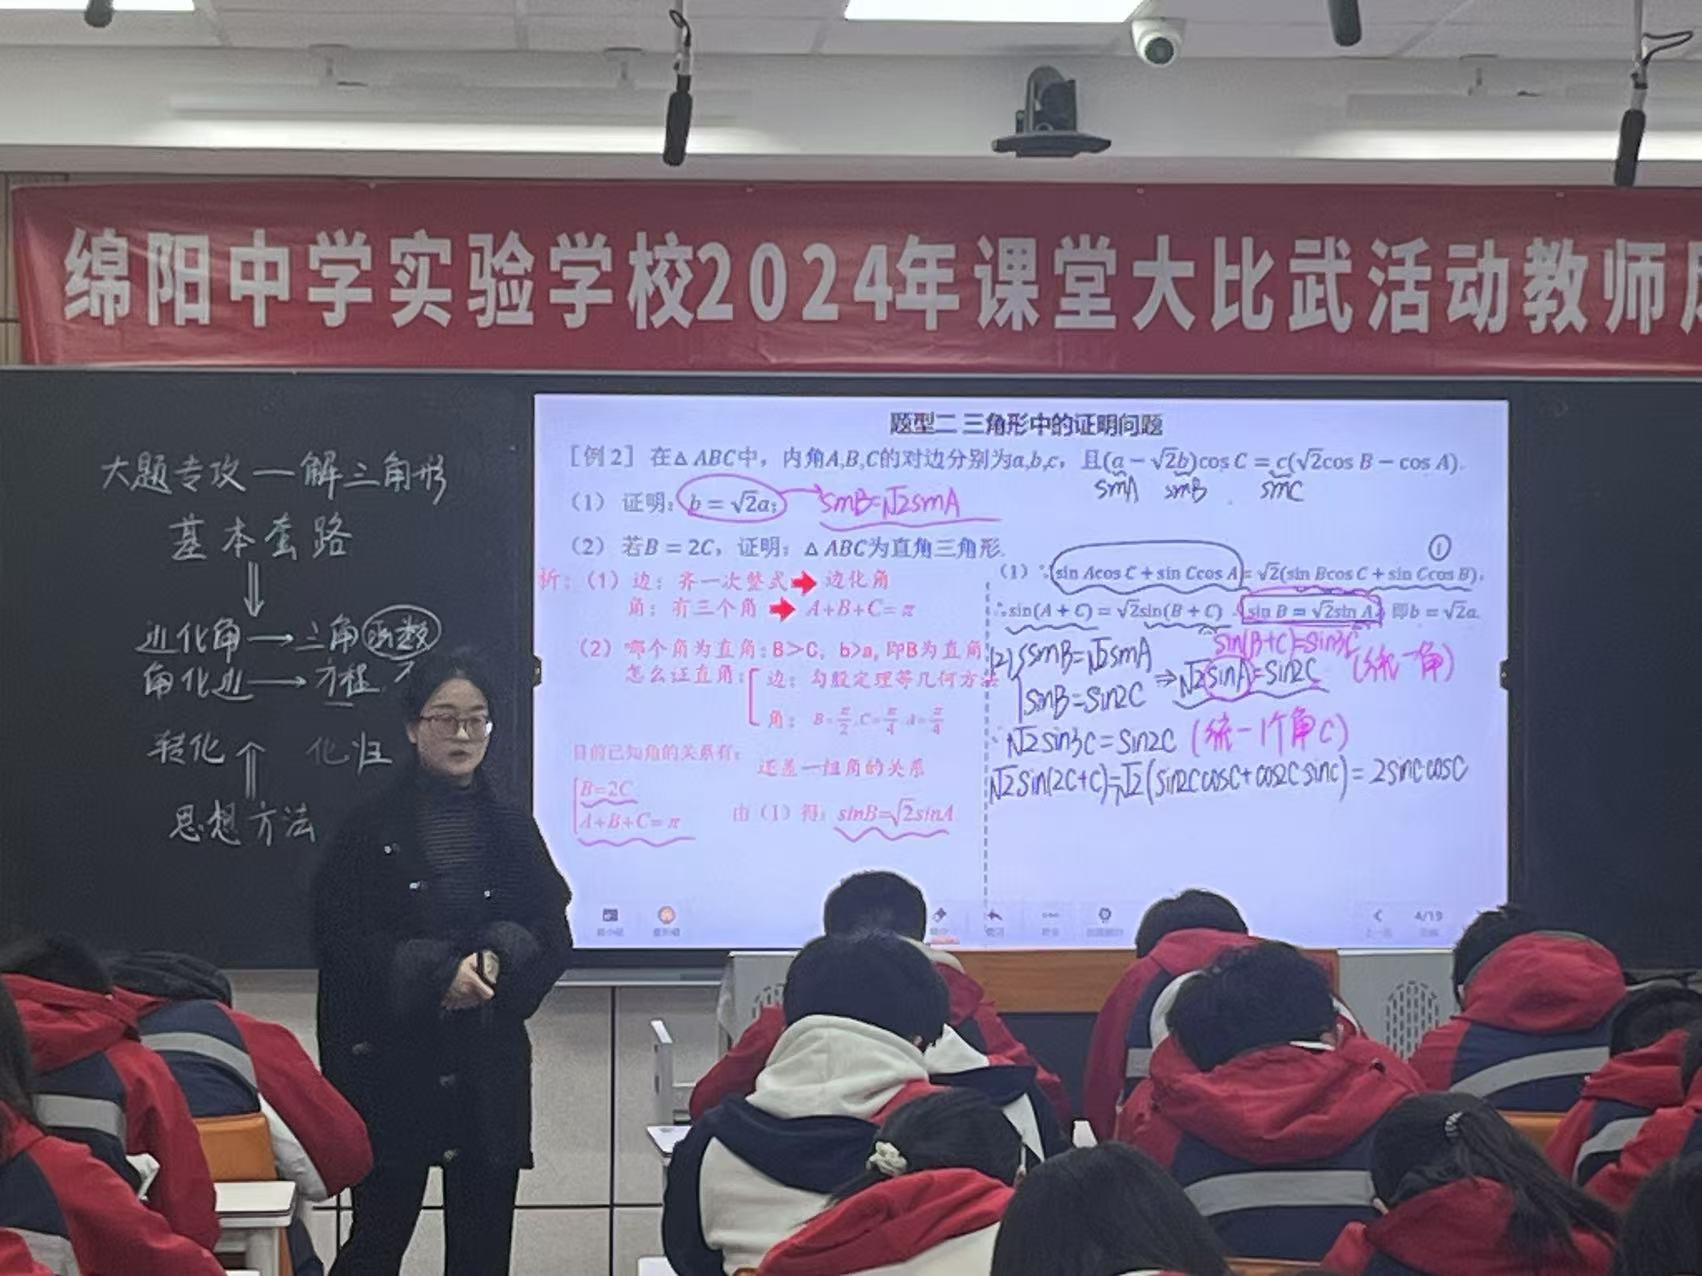 绵阳中学实验学校2024年课堂大比武活动教师
大题专攻—解三角形
基本套路
边化角→三角函数
角化边→方程
转化 化归
思想方法
题型二 三角形中的证明问题
[例2] 在△ABC中，内角A,B,C的对边分别为a,b,c，且(a-√2b)cos C=c(√2cos B-cos A).
sinA sinB sinC
(1) 证明：b=√2a; → sinB=√2sinA
(2) 若B=2C，证明：△ABC为直角三角形.
析：(1) 边：齐一次整式 → 边化角
角：有三个角 → A+B+C=π
(2) 哪个角为直角：B>C，b>a，即B为直角
怎么证直角： 边：勾股定理等几何方法
角：B=π/2,C=π/4,A=π/4
目前已知角的关系有：
还差一组角的关系
B=2C
A+B+C=π
由(1)得：sinB=√2sinA
①
(1) ∵sin Acos C+sin Ccos A=√2(sin Bcos C+sin Ccos B),
∴sin(A+C)=√2sin(B+C) sin B=√2sin A, 即b=√2a.
sin(B+C)=sin3C
(2) sinB=√2sinA
sinB=sin2C
⇒ √2sinA=sin2C (统一角)
√2sin3C=sin2C (统一1个角C)
√2sin(2C+C)=√2(sin2CcosC+cos2CsinC)=2sinCcosC
4/19